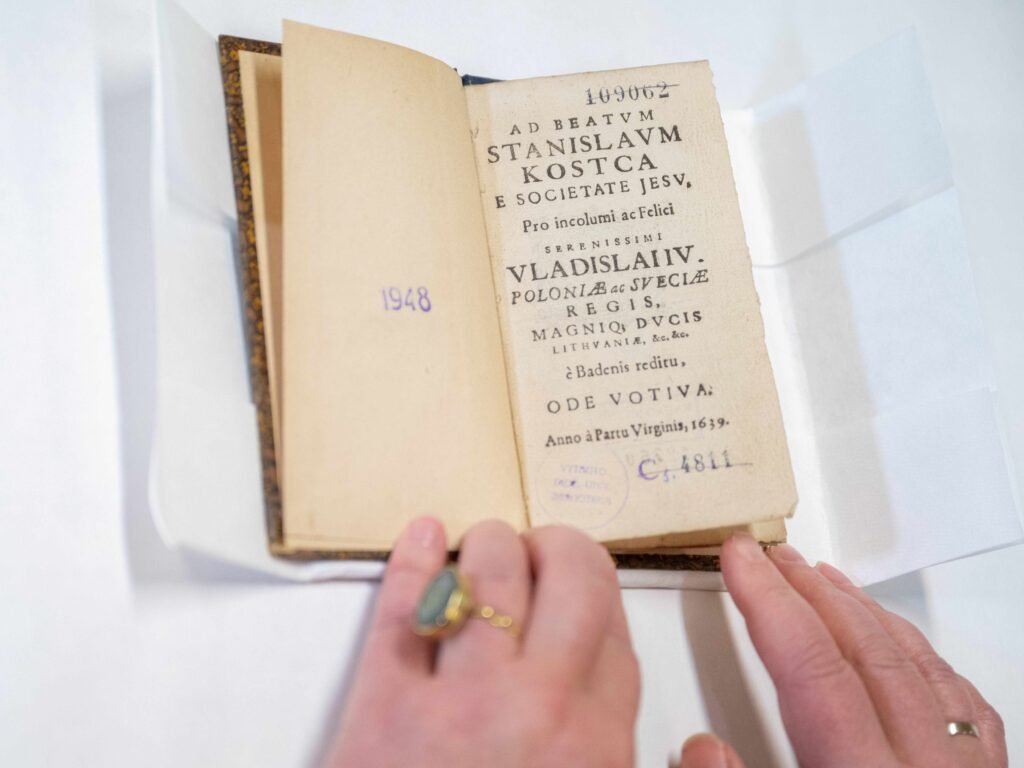 1948
109062
AD BEATVM
STANISLAVM
KOSTCA
E SOCIETATE JESV,
Pro incolumi ac Felici
SERENISSIMI
VLADISLAI IV.
POLONIÆ ac SVECIÆ
REGIS,
MAGNIQ; DVCIS
LITHVANIÆ, &c. &c.
è Badenis reditu,
ODE VOTIVA.
Anno à Partu Virginis, 1639.
C. 4811